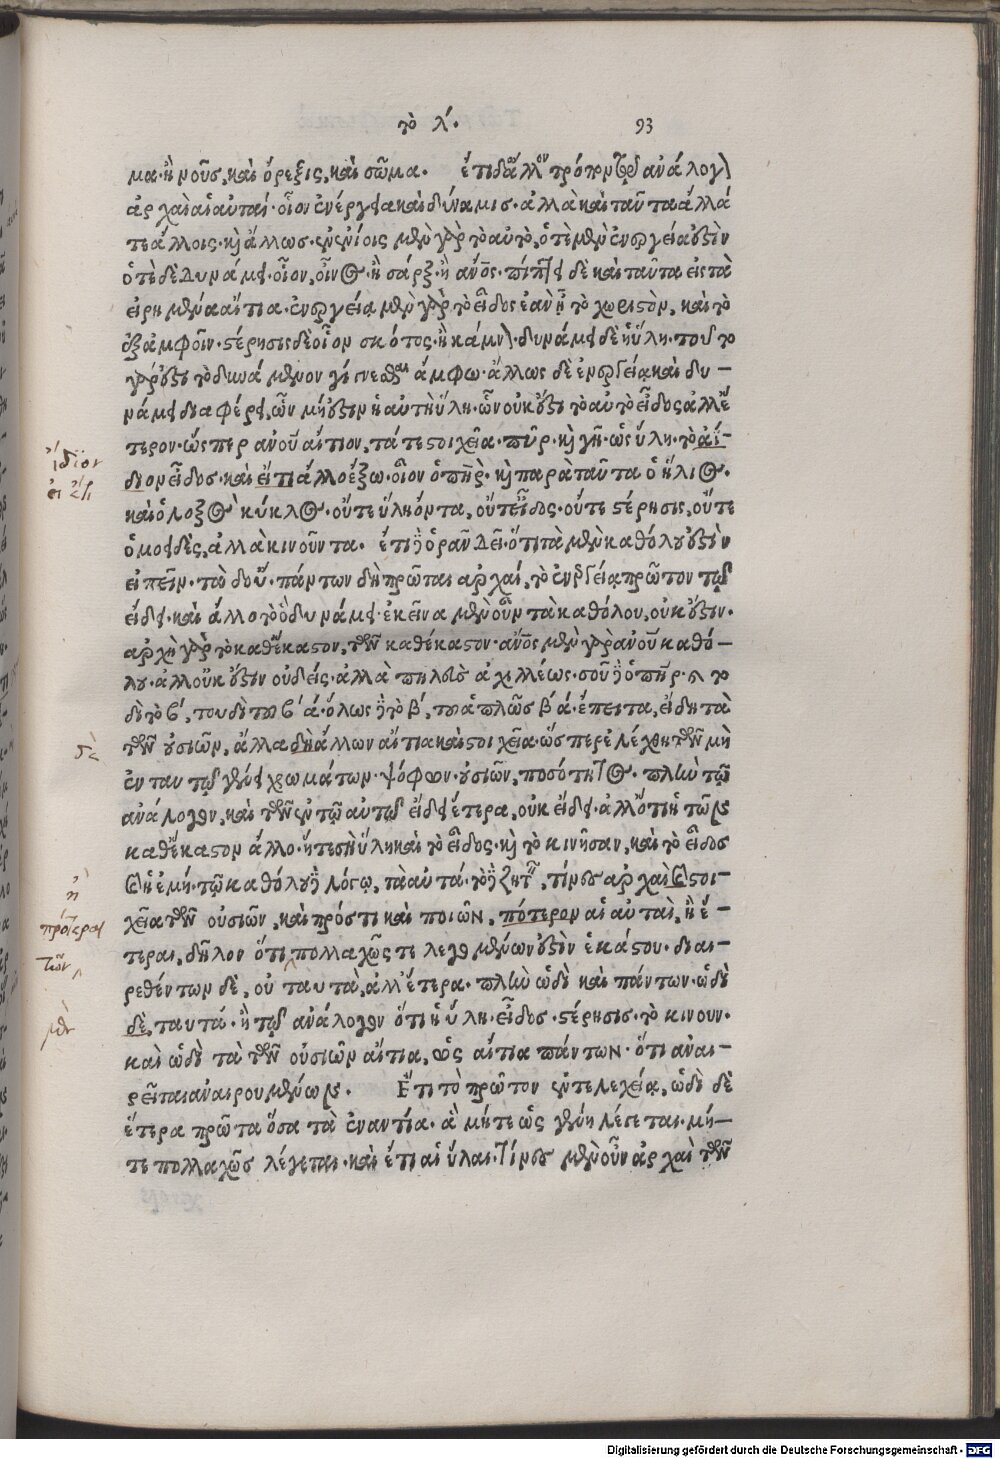 τὸ λ´. 93
μα· ἢ νοῦς, καὶ ὄρεξις, καὶ σῶμα. ἔτι δ᾽ ἄλλον τρόπον τῷ ἀνάλογον
ἀρχαὶ αἱ αὐταί· οἷον ἐνέργεια καὶ δύναμις· ἀλλὰ καὶ ταῦτα ἄλλά
τε ἄλλοις· καὶ ἄλλως· ἐν ἐνίοις μὲν γὰρ τὸ αὐτὸ, ὁτὲ μὲν ἐνεργείᾳ ἐστὶν
ὁτὲ δὲ δυνάμει· οἷον, οἶνος· ἢ σάρξ· ἢ ἄνος· πίπτει δὲ καὶ ταῦτα εἰς τὰ
εἰρημένα αἴτια· ἐνεργείᾳ μὲν γὰρ τὸ εἶδος ἐὰν ᾖ τὸ χωριστὸν, καὶ τὸ
ἐξ ἀμφοῖν· στέρησις δὲ οἷον σκότος· ἢ κάμνον· δυνάμει δὲ ἡ ὕλη· τοῦτο
γάρ ἐστι τὸ δυνάμενον γίγνεσθαι ἄμφω· ἄλλως δὲ ἐνεργείᾳ καὶ δυ-
νάμει διαφέρει, ὧν μή ἐστιν ἡ αὐτὴ ὕλη· ὧν οὐκ ἔστι τὸ αὐτὸ εἶδος ἀλλ᾽ ἕ
τερον· ὥςπερ ἀνοῦ αἴτιον, τά τε στοιχεῖα· πῦρ· καὶ γῆ· ὡς ὕλη· τὸ ἀΐ-
διον εἶδος· καὶ ἔτι ἄλλο ἔξω· οἷον ὁ πῆρ· καὶ παρὰ ταῦτα ὁ ἥλιος·
καὶ ὁ λοξὸς κύκλος· οὔτε ὕλη ὄντα, οὔτ᾽ εἶδος· οὔτε στέρησις, οὔτε
ὁμοειδὲς, ἀλλὰ κινοῦντα. ἔτι δὲ ὁρᾶν δεῖ· ὅτι τὰ μὲν καθόλου ἐστὶν
εἰπεῖν· τὰ δ᾽ οὔ· πάντων δὴ πρῶται ἀρχαί, τὸ ἐνεργείᾳ πρῶτον τῷ
εἴδει· καὶ ἄλλο τὸ ὃ δυνάμει· ἐκεῖνα μὲν οὖν τὰ καθόλου, οὐκ ἔστιν·
ἀρχὴ γὰρ τὸ καθ᾽ ἕκαστον, τῶν καθέκαστον· ἄνος μὲν γὰρ ἀνοῦ καθό-
λου· ἀλλ᾽ οὐκ ἔστιν οὐδείς· ἀλλὰ πηλεὺς ἀχιλλέως· σοῦ δὲ ὁ πῆρ·
δὶ τὸ β´, τουδὶ τοῦ β´ ά· ὅλως δὲ τὸ β´, τοῦ ἁπλῶς β ά· ἔπειτα, εἴδη τὰ
τῶν οὐσιῶν, ἄλλα δὴ ἄλλων αἴτια καὶ στοιχεῖα· ὥςπερ ἐλέχθη τῶν μὴ
ἐν ταυτῷ γένει χρωμάτων· ψόφων· οὐσιῶν, ποσότητος· πλὴν τῷ
ἀνάλογον, καὶ τῶν ἐν τῷ αὐτῷ εἴδει ἕτερα, οὐκ εἴδει· ἀλλ᾽ ὅτι ἡ τῶν
καθ᾽ ἕκαστον ἄλλο· ἥ τε σὴ ὕλη καὶ τὸ εἶδος· καὶ τὸ κινῆσαν, καὶ τὸ εἶδος
καὶ ἡ ἐμή· τῷ καθόλου δὲ λόγῳ, τὰ αὐτά· τὸ δὲ ζητεῖν, τίνες ἀρχαὶ καὶ στοι-
χεῖα τῶν οὐσιῶν, καὶ πρός τι καὶ ποιῶν, πότερον αἱ αὐταὶ, ἢ ἕ-
τεραι, δῆλον ὅτι πολλαχῶς τε λεγομένων ἐστὶν ἑκάστου· διαι-
ρεθέντων δὲ, οὐ ταυτὰ, ἀλλ᾽ ἕτερα· πλὴν ὡδὶ καὶ πάντων· ὡδὶ
δὲ, ταυτά· ἢ τῷ ἀνάλογον ὅτι ἡ ὕλη· εἶδος· στέρησις· τὸ κινουν·
καὶ ὡδὶ τὰ τῶν οὐσιῶν αἴτια, ὡς αἴτια πάντων· ὅτι ἀναι-
ρεῖται ἀναιρουμένων. Ἔτι τὸ πρῶτον ἐντελεχείᾳ, ὡδὶ δὲ
ἕτερα πρῶτα ὅσα τὰ ἐναντία· ἃ μήτε ὡς γένη λέγεται· μή-
τε πολλαχῶς λέγεται· καὶ ἔτι αἱ ὕλαι· τίνες μὲν οὖν ἀρχαὶ τῶν
ἴδϊον
δὲ
ἢ
μὲν
Digitalisierung gefördert durch die Deutsche Forschungsgemeinschaft - DFG